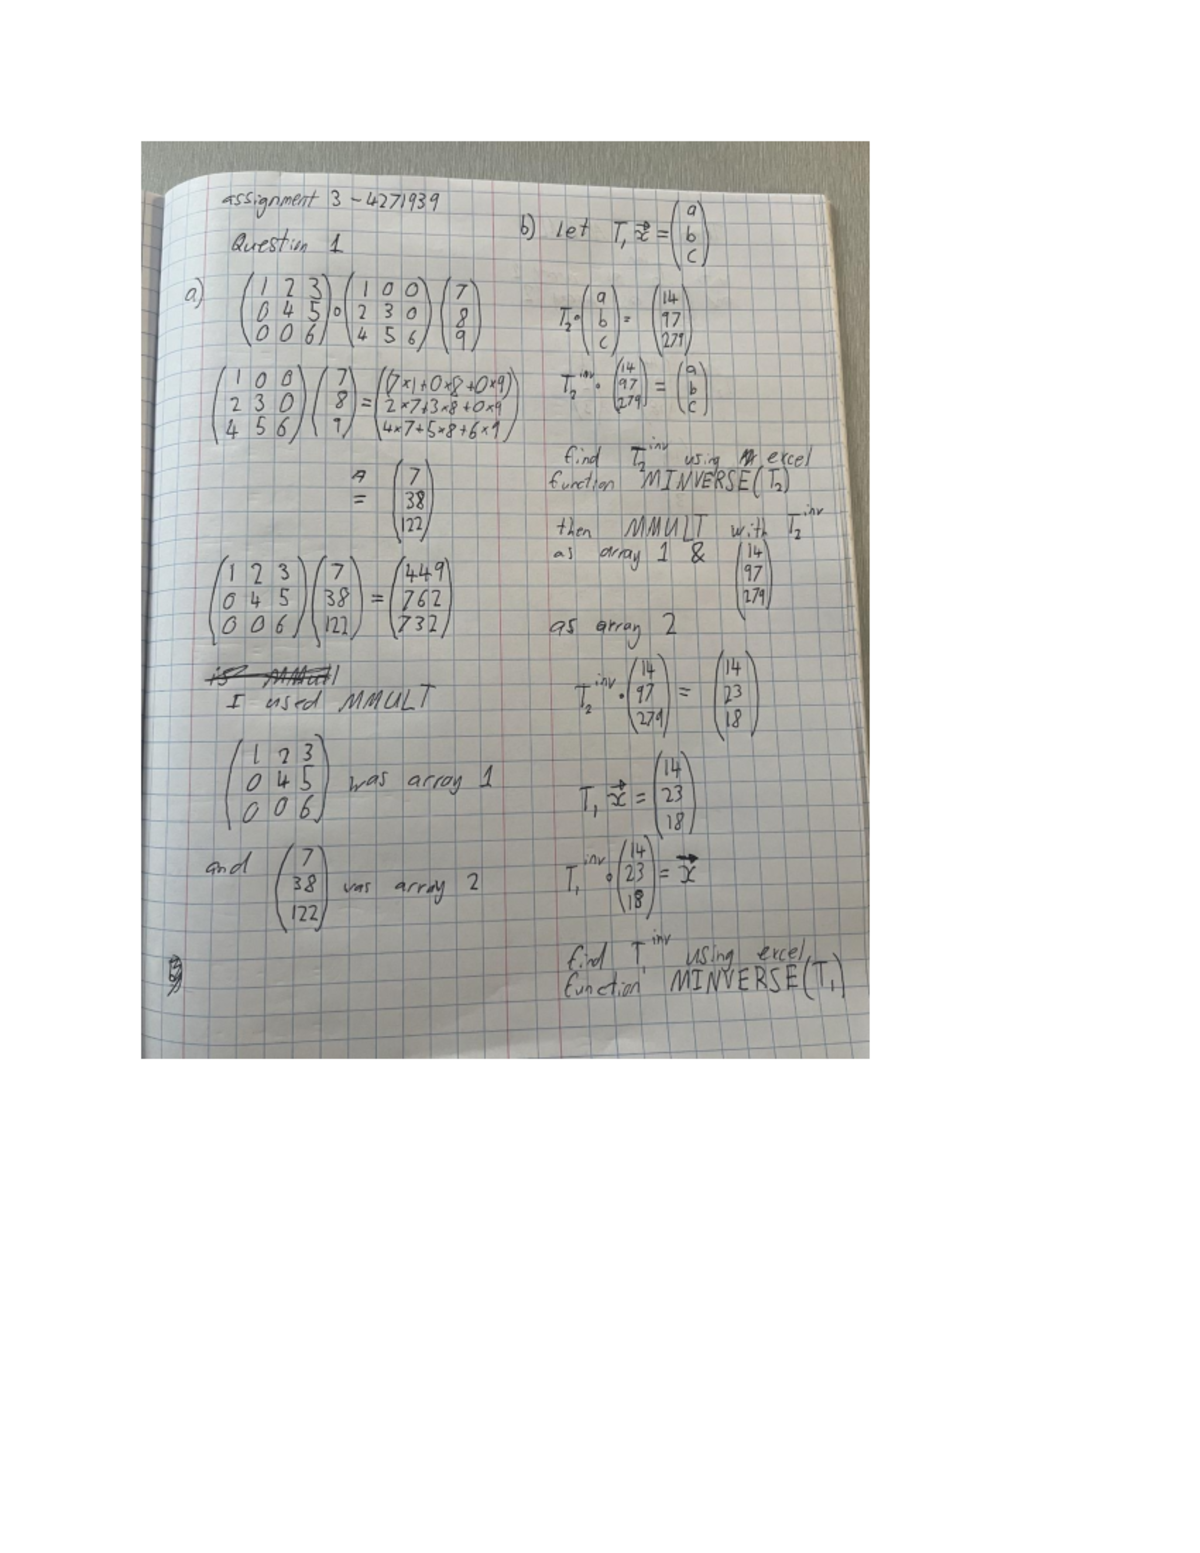 assignment 3 - 4271939
Question 1
a) (1 2 3; 0 4 5; 0 0 6) ∘ (1 0 0; 2 3 0; 4 5 6) (7; 8; 9)
(1 0 0; 2 3 0; 4 5 6) (7; 8; 9) = (7×1+0×8+0×9; 2×7+3×8+0×9; 4×7+5×8+6×9)
= (7; 38; 122)
(1 2 3; 0 4 5; 0 0 6) (7; 38; 122) = (449; 762; 732)
I used MMULT
(1 2 3; 0 4 5; 0 0 6) was array 1
and (7; 38; 122) was array 2
b) let T₁ x⃗ = (a; b; c)
T₂ · (a; b; c) = (14; 97; 279)
T₂ⁱⁿᵛ · (14; 97; 279) = (a; b; c)
find T₂ⁱⁿᵛ using excel
function MINVERSE(T₂)
then MMULT with T₂ⁱⁿᵛ
as array 1 & (14; 97; 279)
as array 2
T₂ⁱⁿᵛ · (14; 97; 279) = (14; 23; 18)
T₁ x⃗ = (14; 23; 18)
T₁ⁱⁿᵛ ∘ (14; 23; 18) = x⃗
find T₁ⁱⁿᵛ using excel
function MINVERSE(T₁)